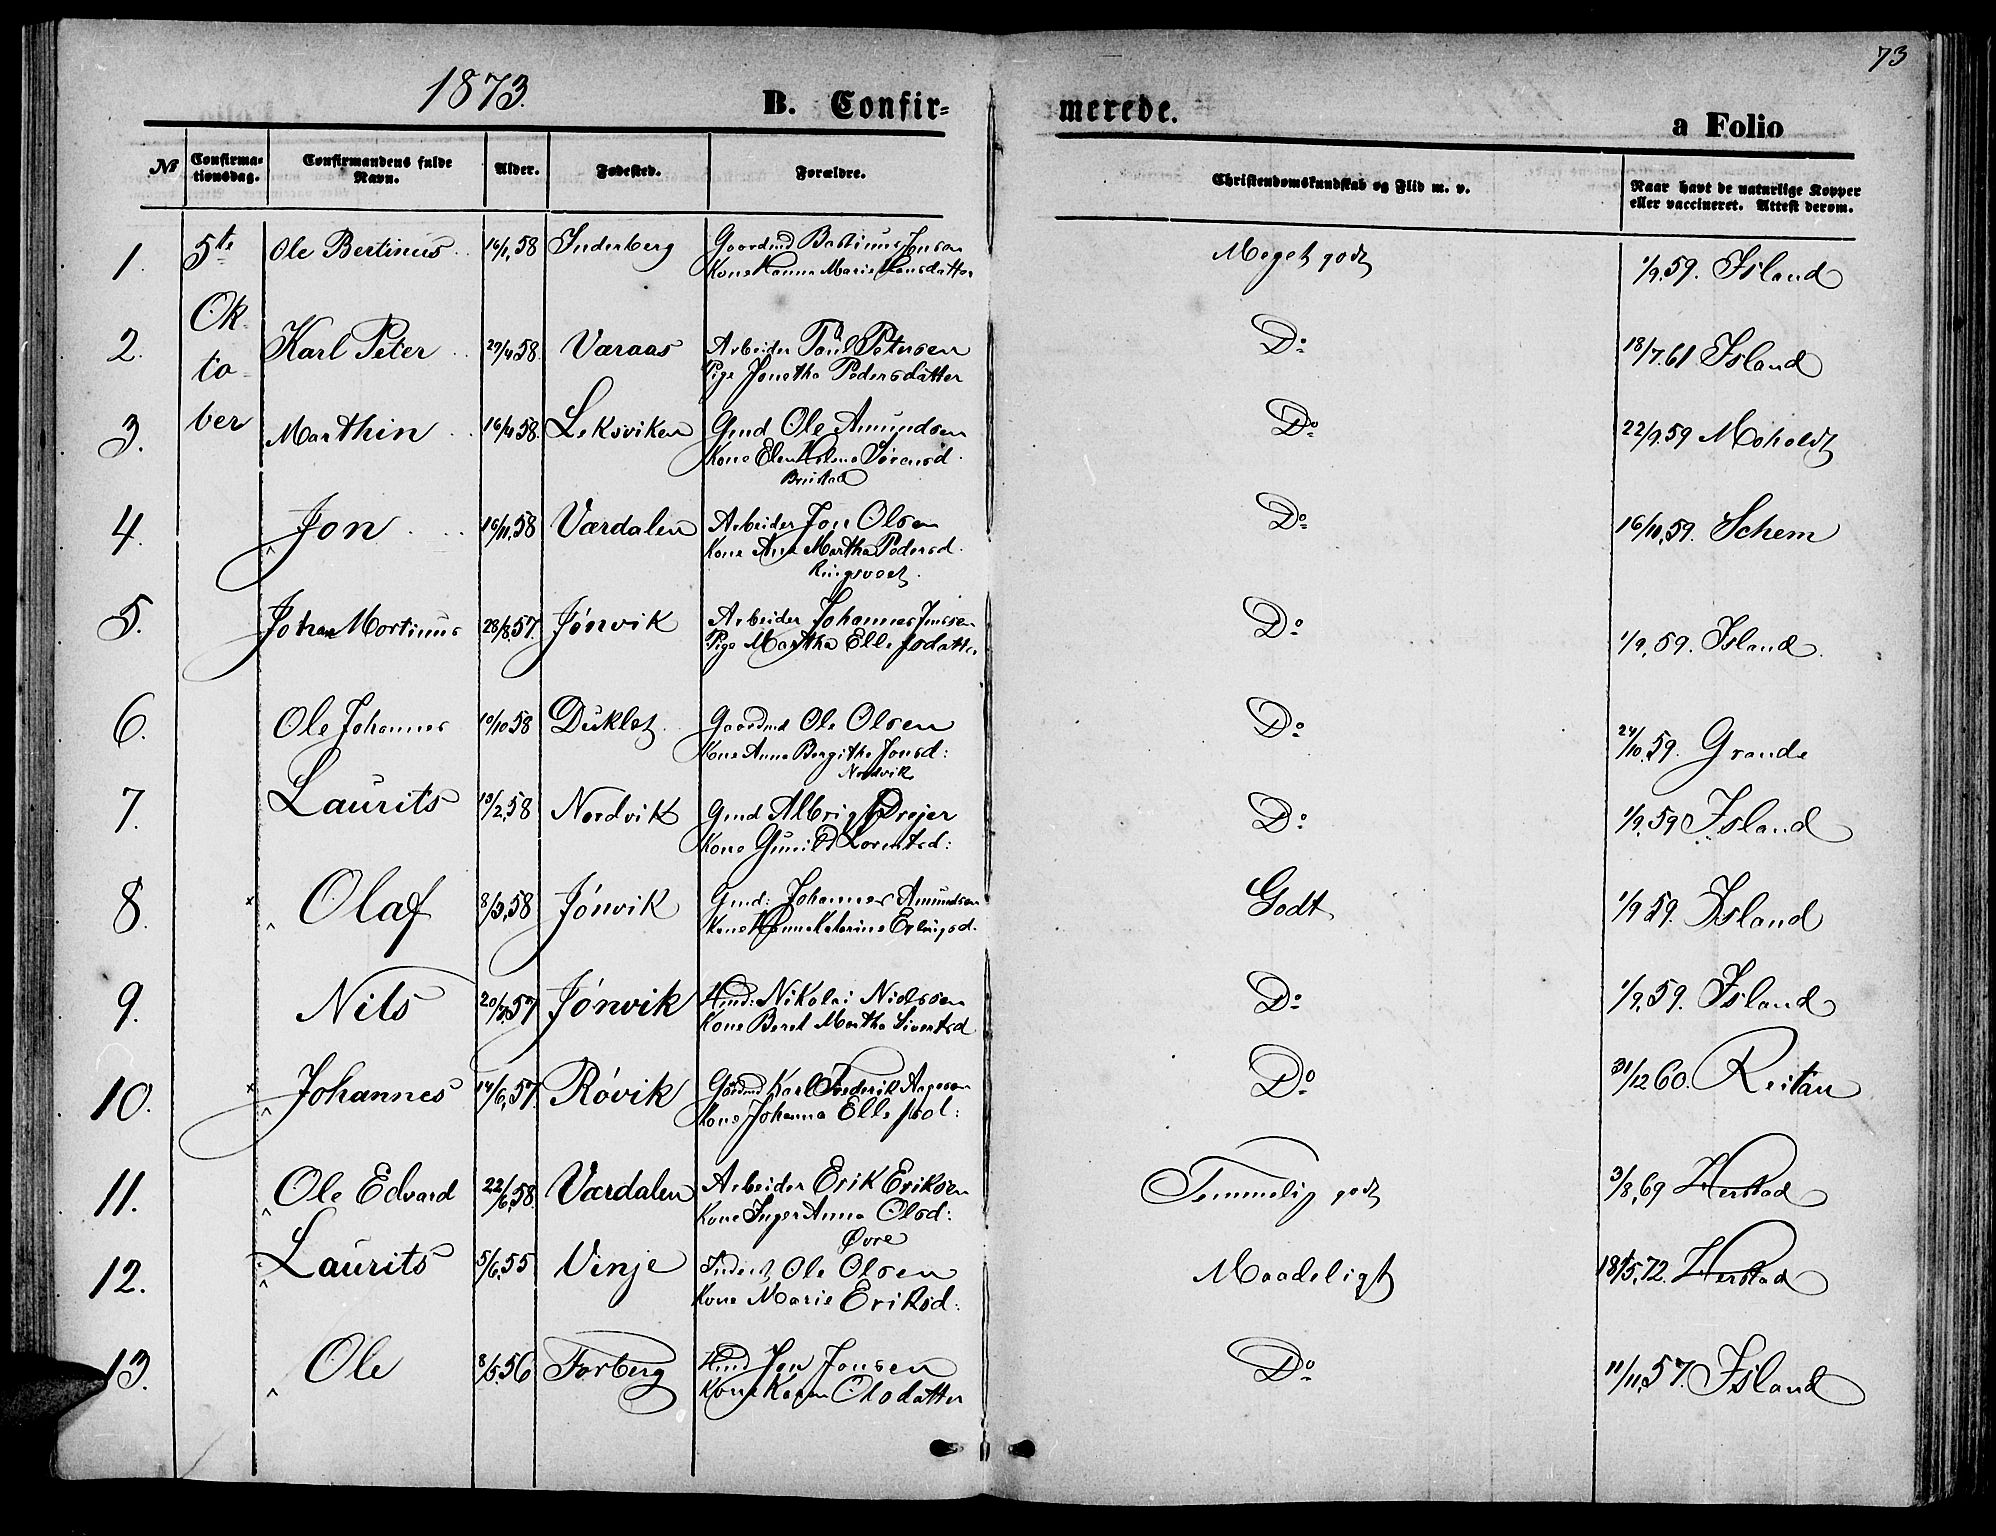 73
1873.
B. Confir=
merede.
a Folio
No
Confirma=
tionsdag.
Confirmandens fulde
Navn.
Alder.
Fødested.
Forældre.
Christendomskundskab og Flid m. v.
Naar havt de naturlige Kopper
eller vaccineret. Attest derom.
5te
Ok
to
ber
1. Ole Bertinus 16/1,58 Inderberg Gaardmd Bastinus Jensen Meget godt 1/9.59. Island
Kone Hanna Marie Hansdatter
2. Karl Peter 27/4,58. Væraas Arbeider Paul Petersen Do 18/7.61 Island
Pige Jonetha Pedersdatter
3. Marthin 16/4.58. Leksviken Gmd Ole Amundsen Do 22/9.59 Moholdt
Kone Elen Sørensd.
4. Jon 16/11,58 Værdalen Arbeider Jon Olsen Do 16/10,59. Schem
Kone Ane Martha Pedersd.
5. Johan Martinus 28/8,57. Jønvik Arbeider Johannes Jenssen Do 1/9,59. Island.
Pige Martha Ellefsdatter
6. Ole Johannes 10/10.58 Duklet. Gaardmd Ole Olsen Do 24/10.59. Grande
Kone Anna Bergithe Jonsd:
Nordvik
7. Laurits 13/2,58 Nordvik Gmd Albrigt Drejer Do 1/9,59 Island
Kone Gunild Lorentsd:
8. Olaf 8/3,58 Jønvik Gmd: Johannes Amundsen Godt 1/9 59. Island
Kone Hanna Katarine Erlingsd.
9. Nils 20/3,57 Jønvik Hmd: Nikolai Nielssen Do 1/9,59. Island
Kone Beret Martha Sivertsd
10. Johannes 14/6,57. Røvik Gaardmd Karl Frederik Aagesen Do 31/12 60. Reitan
Kone Johanna Ellefsd:
11. Ole Edvard 22/6,58. Værdalen Arbeider Erik Eriksen Temmelig godt 3/8,69 Herstad
Kone Inger Anna Olsd:
Øvre
12. Laurits 5/6,55 Vinje Inderst Ole Olsen Maadeligt 18/5,72. Herstad
Kone Marie Eriksd:
13. Ole 8/5.56 Forberg Hmd Jon Jonsen Do 11/11,57. Island
Kone Karen Olsdatter